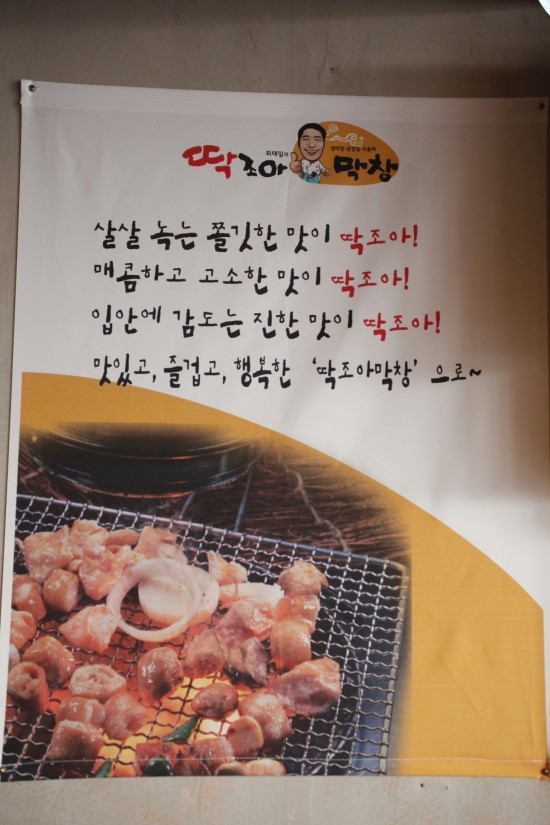 최태일의
딱조아 막창
살살 녹는 쫄깃한 맛이 딱조아!
매콤하고 고소한 맛이 딱조아!
입안에 감도는 진한 맛이 딱조아!
맛있고, 즐겁고, 행복한 '딱조아막창' 으로~